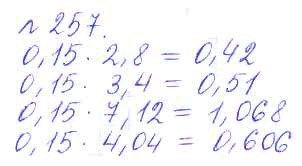 № 257.
0,15 · 2,8 = 0,42
0,15 · 3,4 = 0,51
0,15 · 7,12 = 1,068
0,15 · 4,04 = 0,606